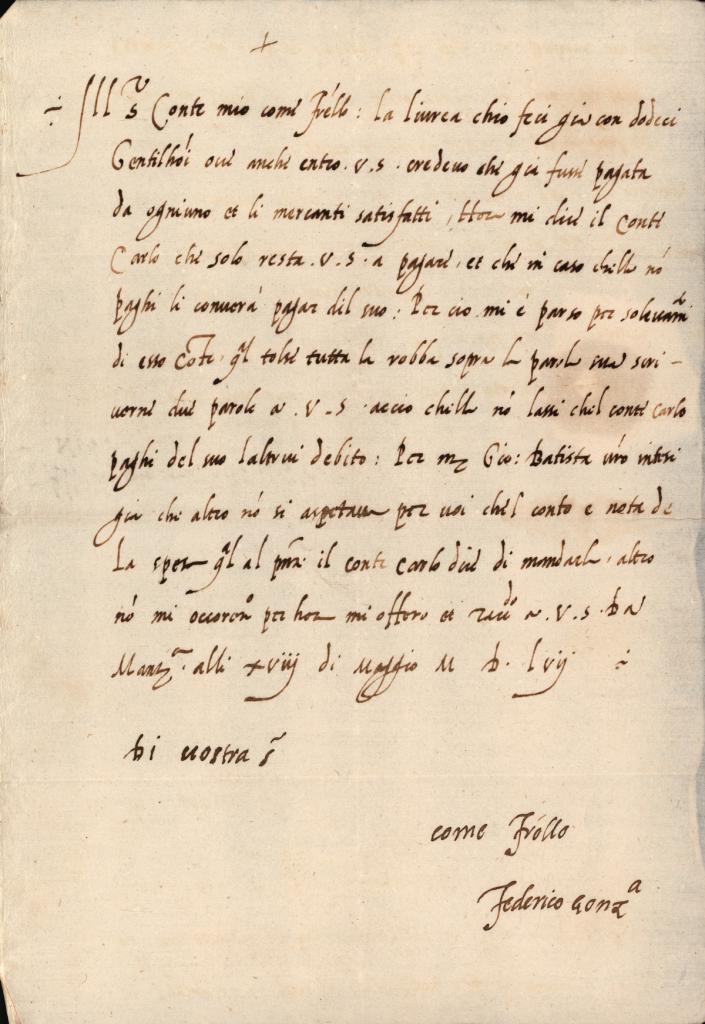 +
Ill.r S. Conte mio come fr̃ello: la liurea ch'io feci gia con dodeci
Gentilhõi oue anche entro .V.S. credeuo che gia fusse pagata
da ogniuno et li mercanti satisfatti, Hor mi dice il Conte
Carlo che solo resta .V.S. a pagare, et che in caso ch'ella nõ
paghi li conuerà pagar dil suo: Per cio mi è parso per soleuam.
di esso Cõte, ql tolse tutta la robba sopra la parola sua scri-
uerne due parole a .V.S. accio ch'ella nõ lassi ch'el conte Carlo
paghi del suo l'altrui debito: Per m. Gio: Batista vr̃o intesi
gia che altro nõ si aspetaua per voi ch'el conto e nota de
La spesa ql al pñte il conte Carlo dice di mandarla, altro
nõ mi occorendo per hora mi offero et racdo a .V.S. Da
Mant.a alli xviij di Maggio M D. lvij
Di vostra S
come Fr̃ello
Federico Gonz.a